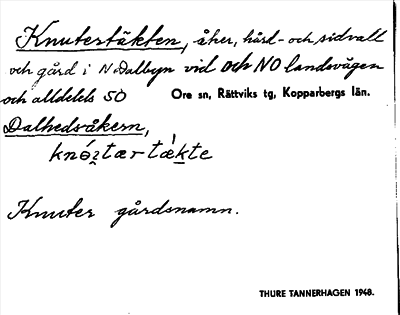 Knutertäkten, åker, hård- och sidvall
och gård i N Dalbyn vid och NO landsvägen
och alldeles SO Ore sn, Rättviks tg, Kopparbergs län.
Dalhedsåkern,
knó̱tær tǽkte
Knuter gårdsnamn.
THURE TANNERHAGEN 1948.